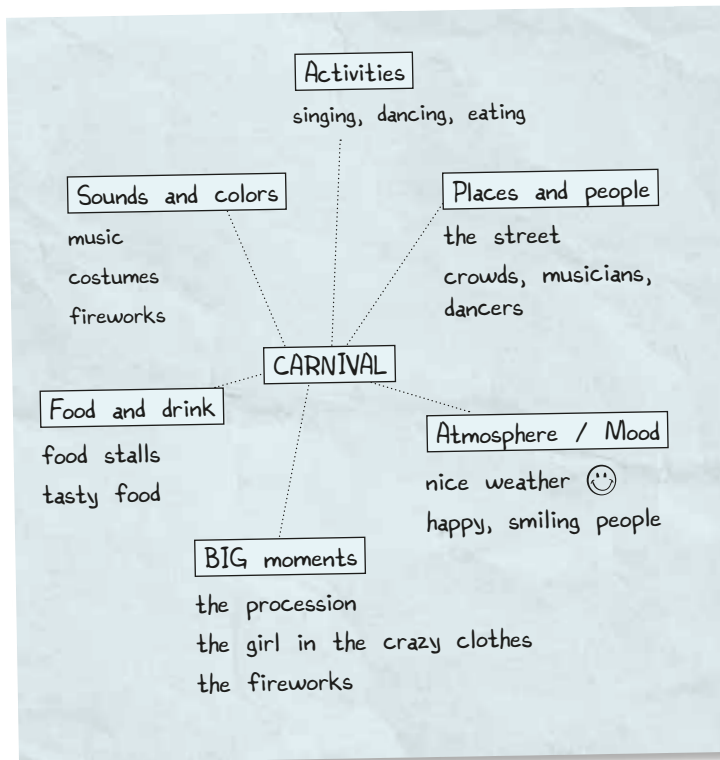 Activities
singing, dancing, eating
Sounds and colors
music
costumes
fireworks
Places and people
the street
crowds, musicians,
dancers
CARNIVAL
Food and drink
food stalls
tasty food
Atmosphere / Mood
nice weather
happy, smiling people
BIG moments
the procession
the girl in the crazy clothes
the fireworks